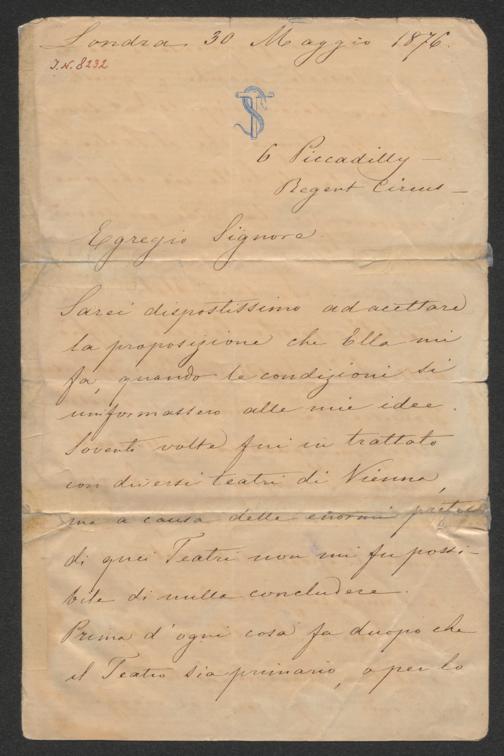 Londra 30 Maggio 1876.
I.N. 8232
TS
6 Piccadilly —
Regent Circus —
Egregio Signore
Sarei dispostissimo ad acettare
la proposizione che Ella mi
fa, quando le condizioni si
uniformassero alle mie idee.
Sovente volte fui in trattato
con diversi teatri di Vienna,
ma a causa delle enormi
di quei Teatri non mi fu possi-
bile di nulla concludere.
Prima d'ogni cosa fa duopo che
il Teatro sia primario, o per lo